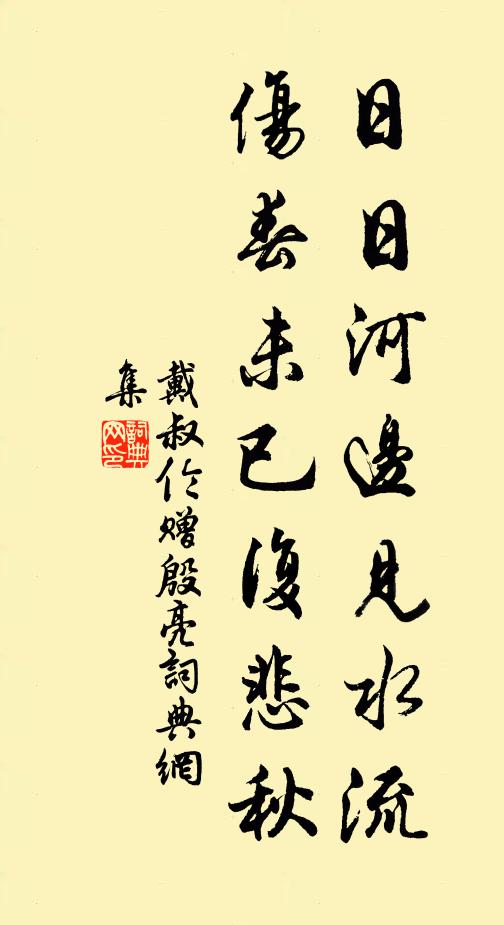 日日河邊見水流
傷春未已復悲秋
戴叔伦赠殷亮詞典網
集
詞典
网印